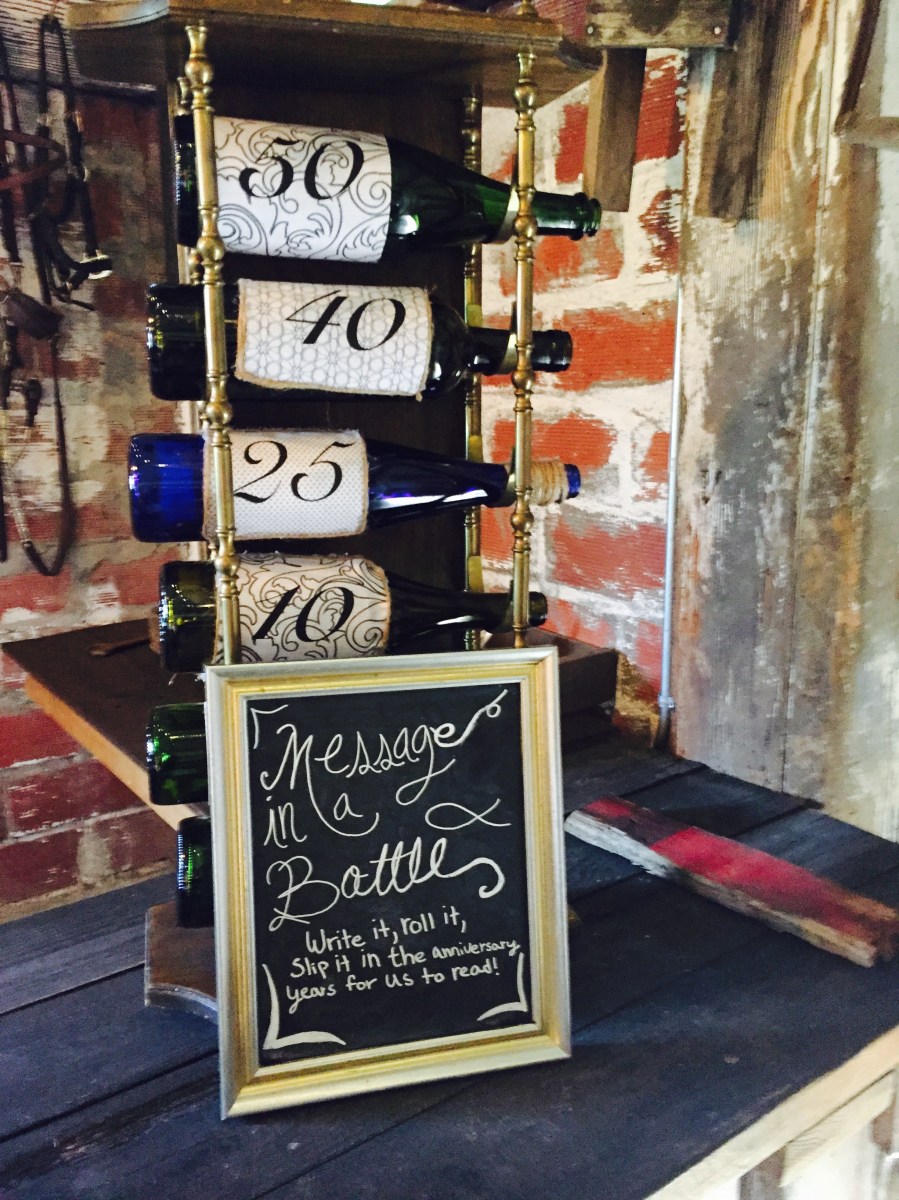 50
40
25
10
Message
in a
Bottle
Write it, roll it,
Slip it in the anniversary
years for us to read!